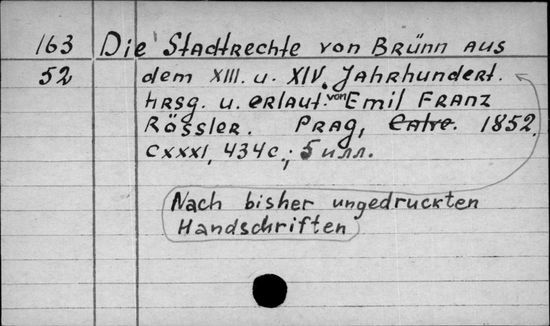 163 Die Stadtrechte von Brünn aus
52 dem XIII. u. XIV. Jahrhundert.
hrsg. u. erlaut. von Emil Franz
Rössler. Prag, Calve. 1852.
CXXXI, 434 с.; 5 илл.
Nach bisher ungedruckten
Handschriften